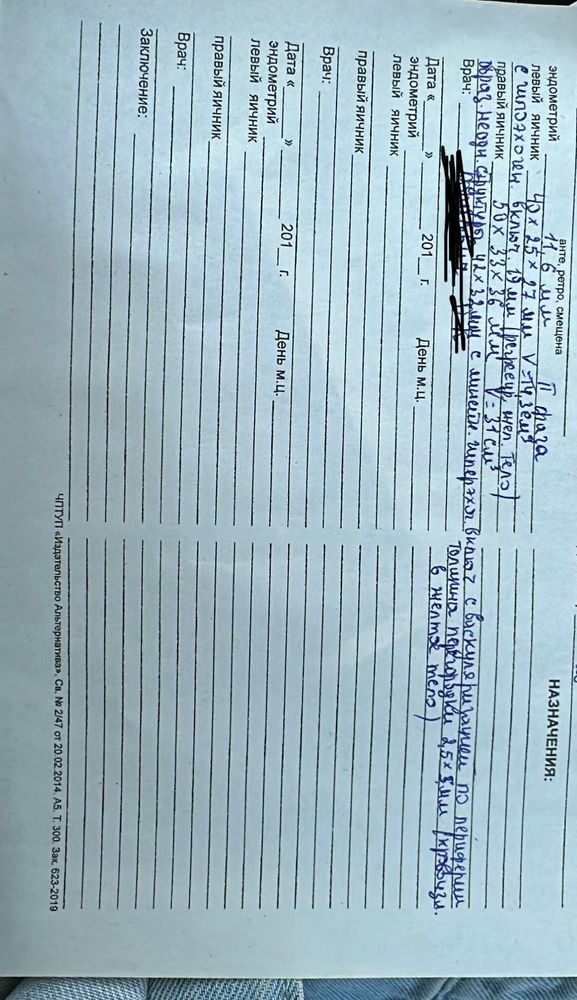 анте, ретро, смещена
эндометрий 11,6 мм II фаза
левый яичник 40 х 25 х 27 мм V=14,3 см³
с гипоэхоген. включ. 19 мм (регрессир. жел. тело)
правый яичник 50 х 33 х 36 мм V=31 см³
образ. неодн. структуры 42х32мм с линейн. гиперэхог. включ с васкуляризацией по периферии
Врач:
толщина перегородки 2,5 х 5 мм (кровоизл.
в желтое тело)
Дата « » 201 г. День м.ц.
эндометрий
левый яичник
правый яичник
Врач:
Дата « » 201 г. День м.ц.
эндометрий
левый яичник
правый яичник
Врач:
Заключение:
НАЗНАЧЕНИЯ:
ЧПТУП «Издательство Альтернатива», Св. № 2/47 от 20.02.2014. А5. Т. 300. Зак. 623-2019